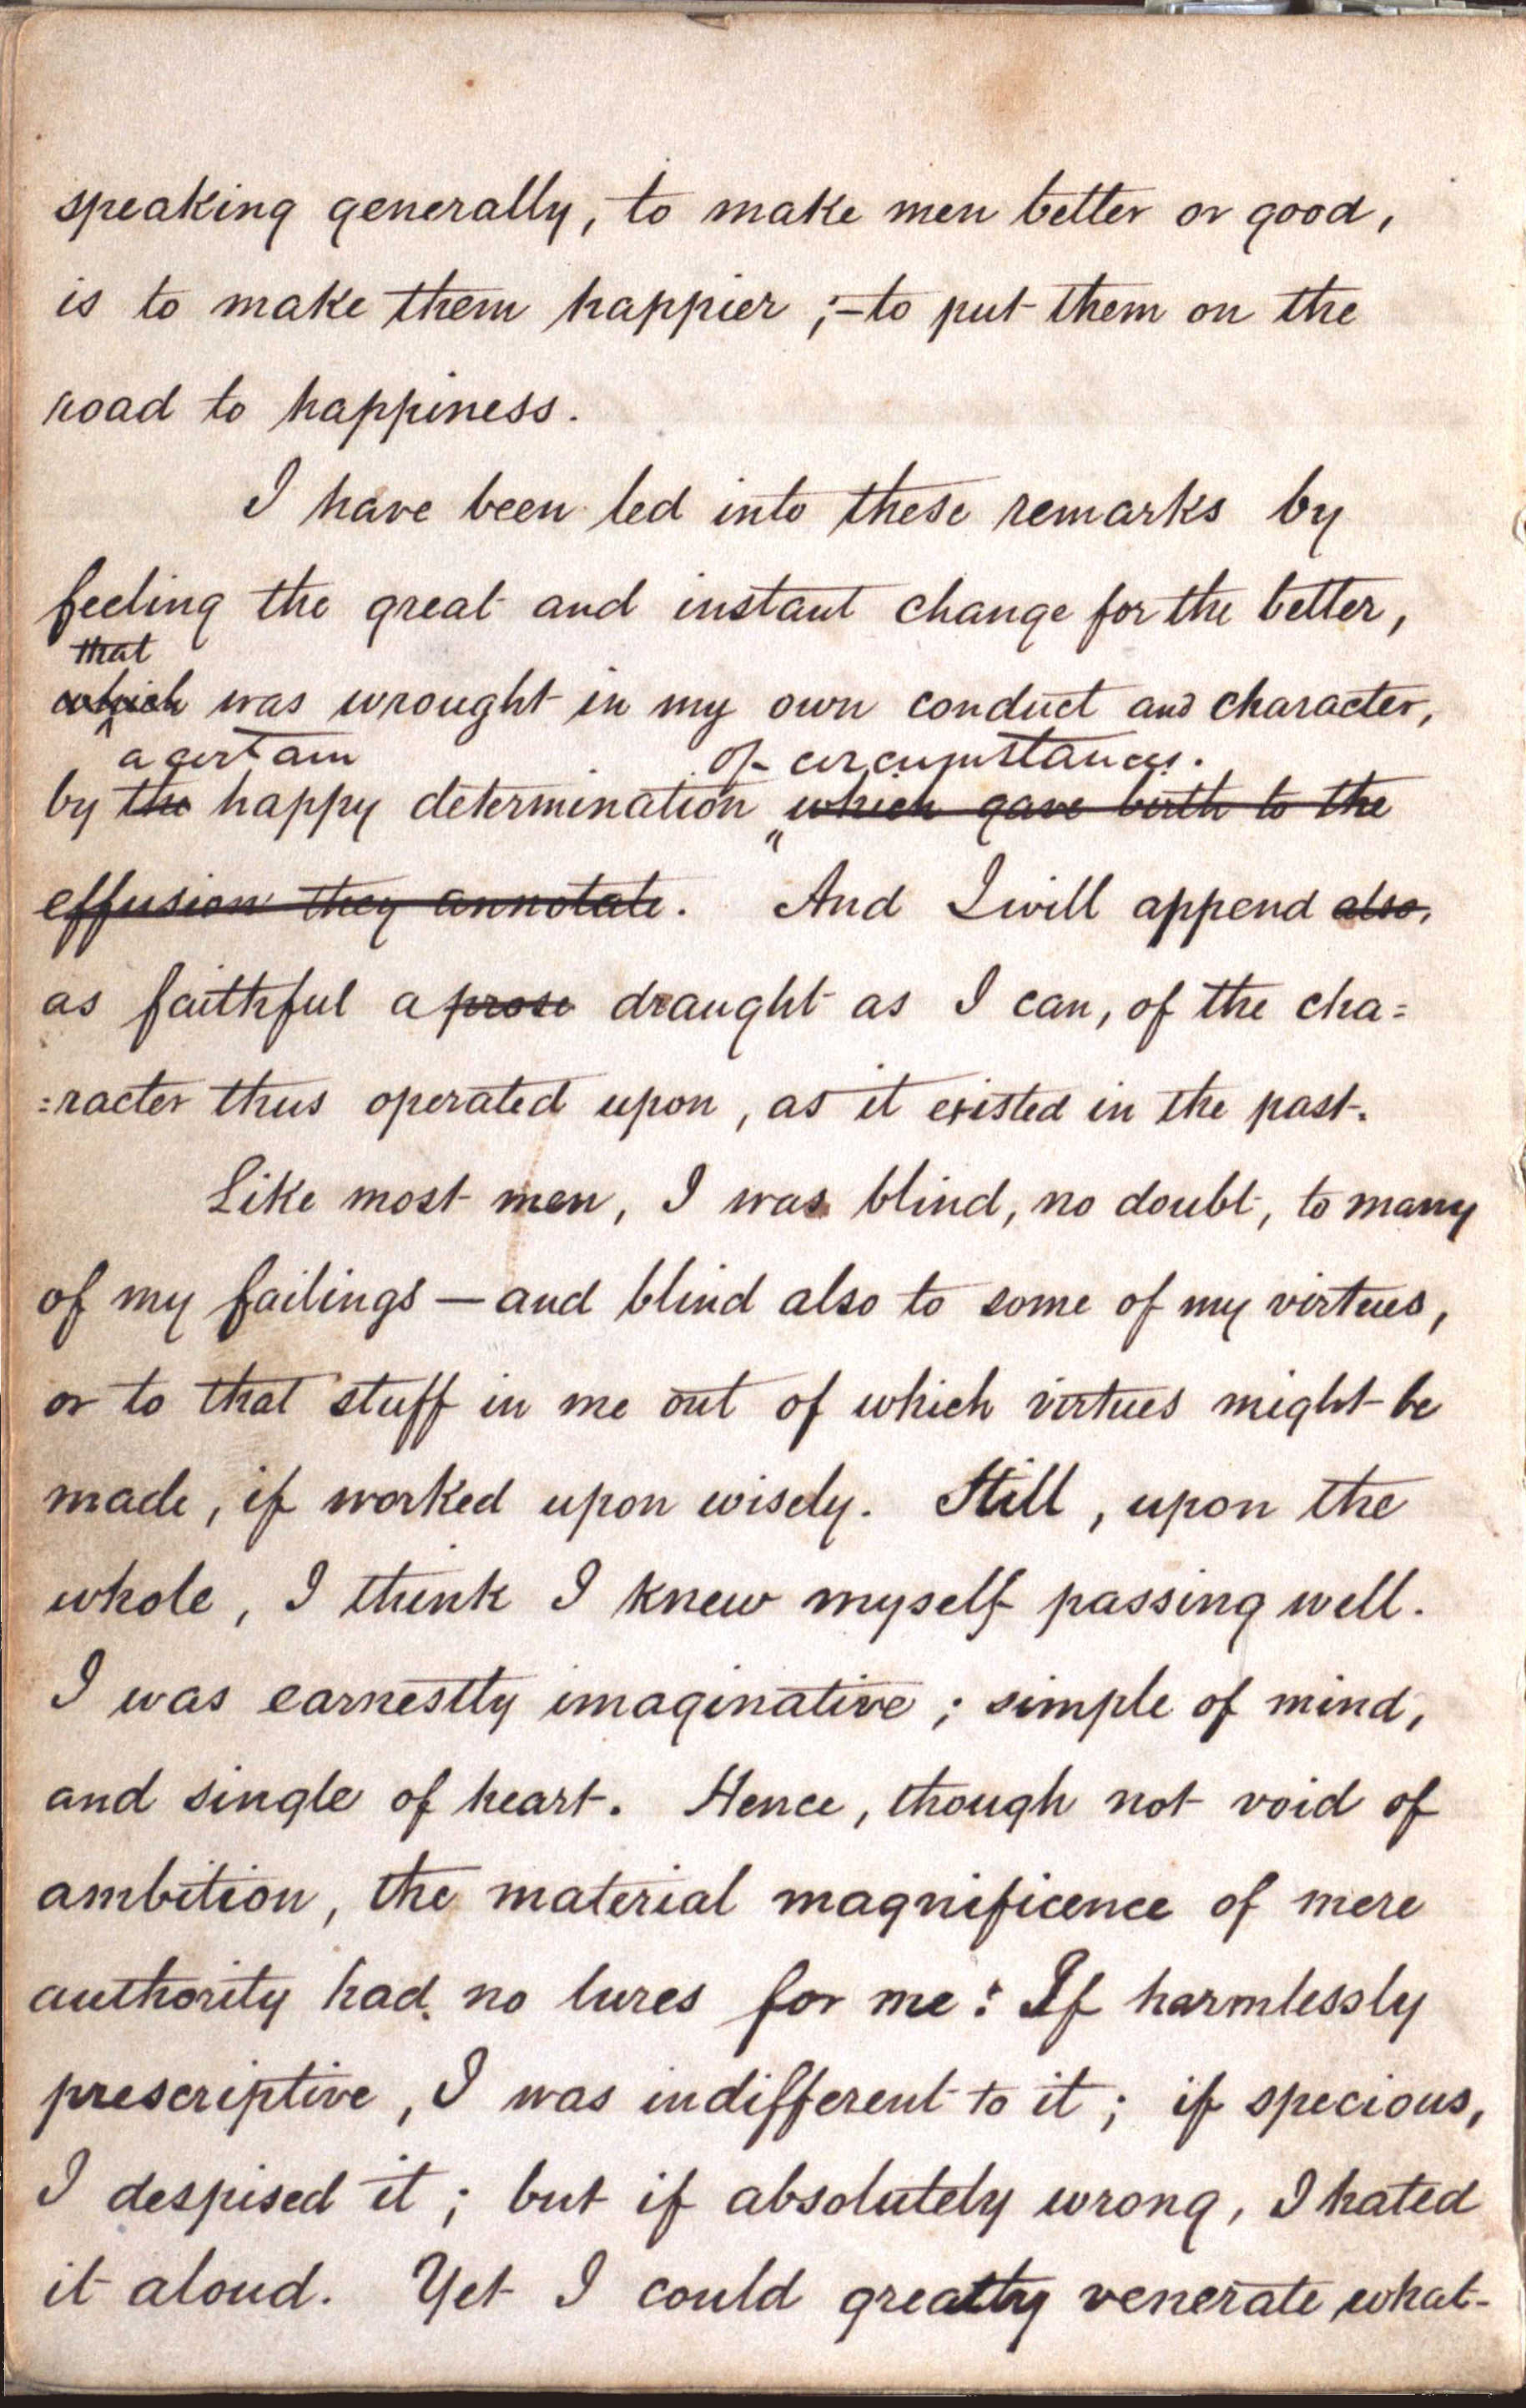 speaking generally, to make men better or good,
is to make them happier ;—to put them on the
road to happiness.
I have been led into these remarks by
feeling the great and instant change for the better,
that
which was wrought in my own conduct and character,
a certain of circumstances.
by the happy determination which gave birth to the
effusion they annotate. And I will append also,
as faithful a prose draught as I can, of the cha=
=racter thus operated upon, as it existed in the past.
Like most men, I was blind, no doubt, to many
of my failings — and blind also to some of my virtues,
or to that stuff in me out of which virtues might be
made, if worked upon wisely. Still, upon the
whole, I think I knew myself passing well.
I was earnestly imaginative ; simple of mind,
and single of heart. Hence, though not void of
ambition, the material magnificence of mere
authority had no lures for me : If harmlessly
prescriptive, I was indifferent to it ; if specious,
I despised it ; but if absolutely wrong, I hated
it aloud. Yet I could greatly venerate what-